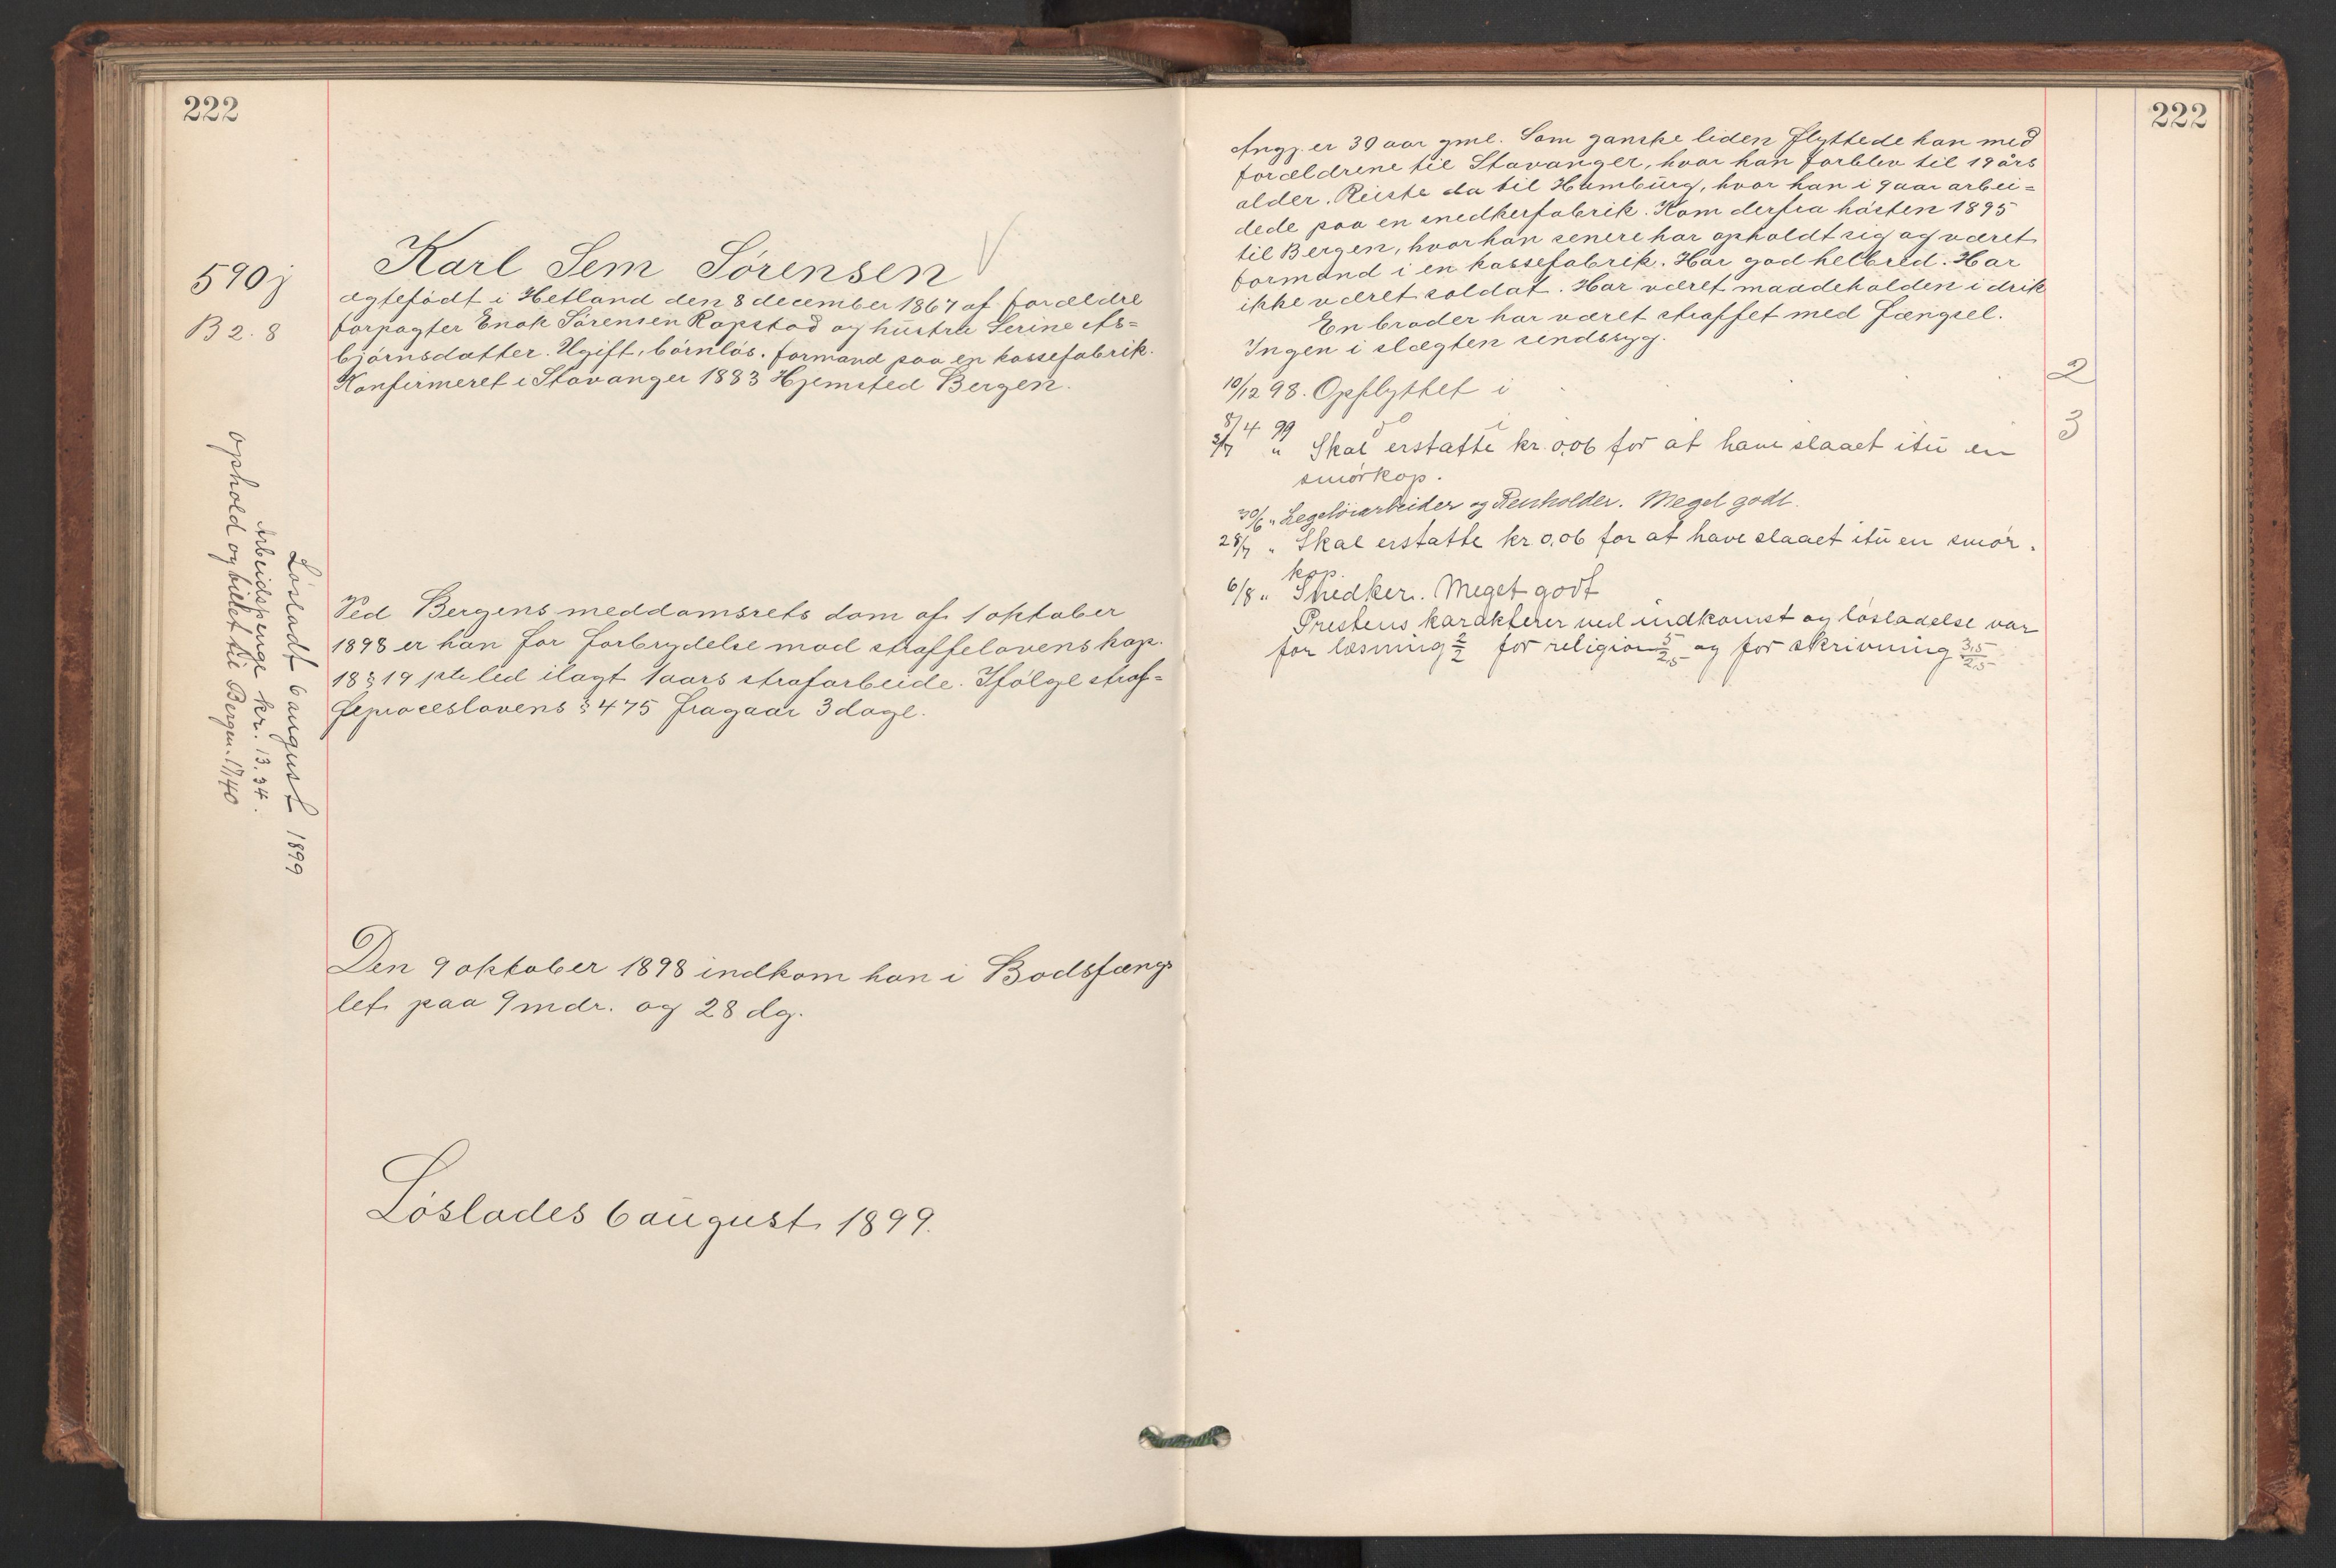 222
590j
B 2. 8
Karl Sem Sörensen V
ægtefödt i Hetland den 8 december 1867 af forældre
forpagter Enok Sörensen Ropstad og hustru Serine As=
björnsdatter. Ugift, börnlös. formand paa en kassefabrik.
Konfirmeret i Stavanger 1883 Hjemsted Bergen.
Ved Bergens meddomsrets dom af 1 oktober
1898 er han for forbrydelse mod straffelovens kap.
18 § 19 1ste led ilagt 1 aars strafarbeide. Ifölge straf=
feproceslovens § 475 fragaar 3 dage.
Lösladt 6 august 1899
Arbeidspenge kr. 13.34.
ophold og billet til Bergen. 17/40
Den 9 oktober 1898 indkom han i Bodsfængs
let paa 9 mdr. og 28 dg.
Löslades 6 august 1899.
222
Angj. er 30 aar gml. Som ganske liden flyttede han med
forældrene til Stavanger, hvor han forblev til 19 års
alder. Reiste da til Hamburg, hvor han i 9 aar arbei=
dede paa en snedkerfabrik. Kom derfra hösten 1895
til Bergen, hvor han senere har opholdt sig og været
formand i en kassefabrik. Har god helbred. Har
ikke været soldat. Har været maadeholden i drik
En broder har været straffet med Fængsel.
Ingen i slægten sindssyg.
10/12 98. Opflyttet i 2
8/4 99 do i 3
3/7 " Skal erstatte kr. 0,06 for at have slaaet itu en
smörkop.
30/6 " Legetöiarbeider og Renholder. Meget godt.
28/7 " Skal erstatte kr 0,06 for at have slaaet itu en smör.
kop.
6/8 " Snedker. Meget godt
Prestens karakterer ved indkomst og lösladelse var
for læsning 2/2 for religion 5/2,5 og for skrivning 3,5/2,5